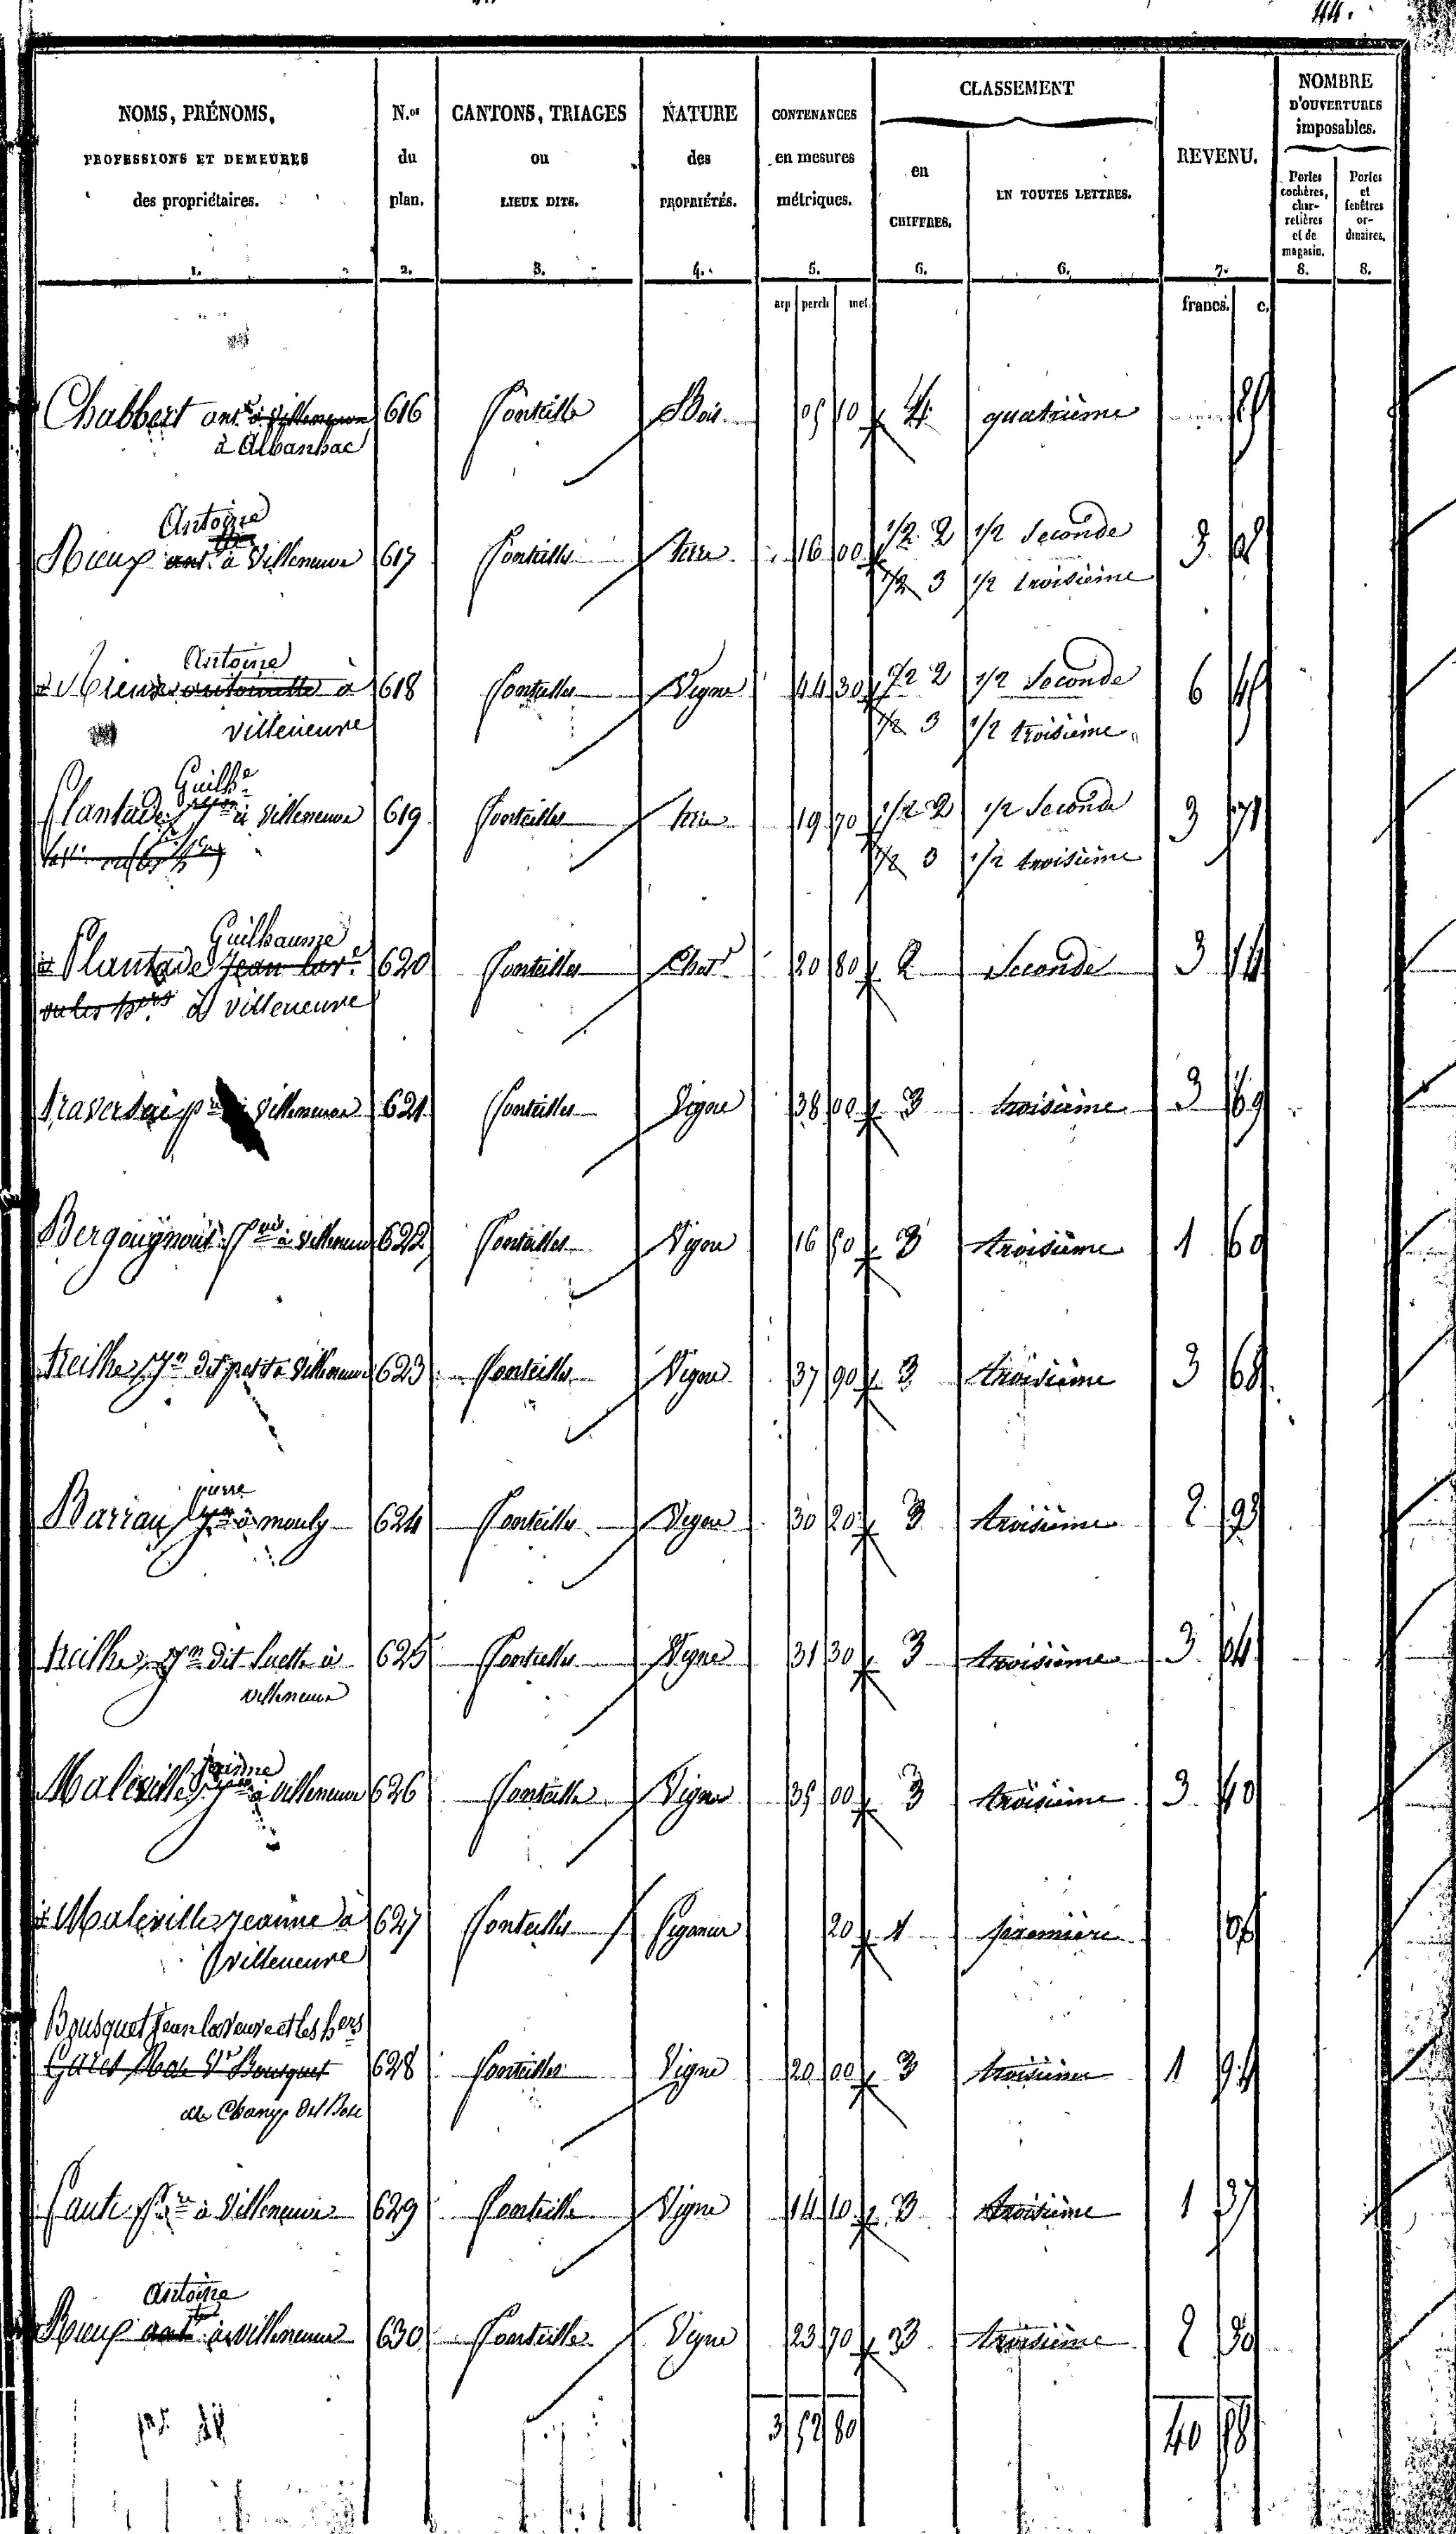 44.
NOMS, PRÉNOMS, PROFESSIONS ET DEMEURES des propriétaires. 1.
N.os du plan. 2.
CANTONS, TRIAGES ou LIEUX DITS. 3.
NATURE des PROPRIÉTÉS. 4.
CONTENANCES en mesures métriques. 5.
CLASSEMENT
en CHIFFRES. 6.
EN TOUTES LETTRES. 6.
REVENU. 7.
NOMBRE D'OUVERTURES imposables.
Portes cochères, charretières et de magasin. 8.
Portes et fenêtres ordinaires. 8.
arp perch met francs. c.
Chabbert ant.e à 616 Fonteilles Bois 05 10 4 quatrième
à Albanhac
Antoine
Rieux ant. à Villeneuve 617 Fonteilles terre 16 00 1/2 2 1/2 Seconde 3
1/2 3 1/2 troisième
Antoine
Rieux antoinette à 618 Fonteilles Vigne 44 30 1/2 2 1/2 Seconde 6 45
villeneuve 1/2 3 1/2 troisième
Guilh.e
Plantade à Villeneuve 619 Fonteilles terre 19 70 1/2 2 1/2 Seconde 3 71
1/2 3 1/2 troisième
Guilhaume
Plantade Jean 620 Fonteilles Chat. 20 80 2 Seconde 3 14
ou les hers à villeneuve
villeneuve 621 Fonteilles Vigne 38 00 3 troisième 3 69
Bergougnoux à villeneuve 622 Fonteilles Vigne 16 50 3 troisième 1 60
treilhe Jn dit petit à Villeneuve 623 Fonteilles Vigne 37 90 3 troisième 3 68
pierre
Barrau à mouly 624 Fonteilles Vigne 30 20 3 troisième 2 93
treilhe Jn dit à 625 Fonteilles Vigne 31 30 3 troisième 3 04
villeneuve
Jeanne
Maleville à villeneuve 626 Fonteilles Vigne 35 00 3 troisième 3 40
Maleville jeanne à 627 Fonteilles Pigeonier 20 1 première 06
villeneuve
Bousquet Jean la Veuve et les hers
Bousquet 628 Fonteilles Vigne 20 00 3 troisième 1 94
de Champ del Bosc
à Villeneuve 629 Fonteilles Vigne 14 10 3 troisième 1 37
Antoine
Rieux ant. à villeneuve 630 Fonteilles Vigne 23 70 3 troisième 2 30
3 52 80 40 98